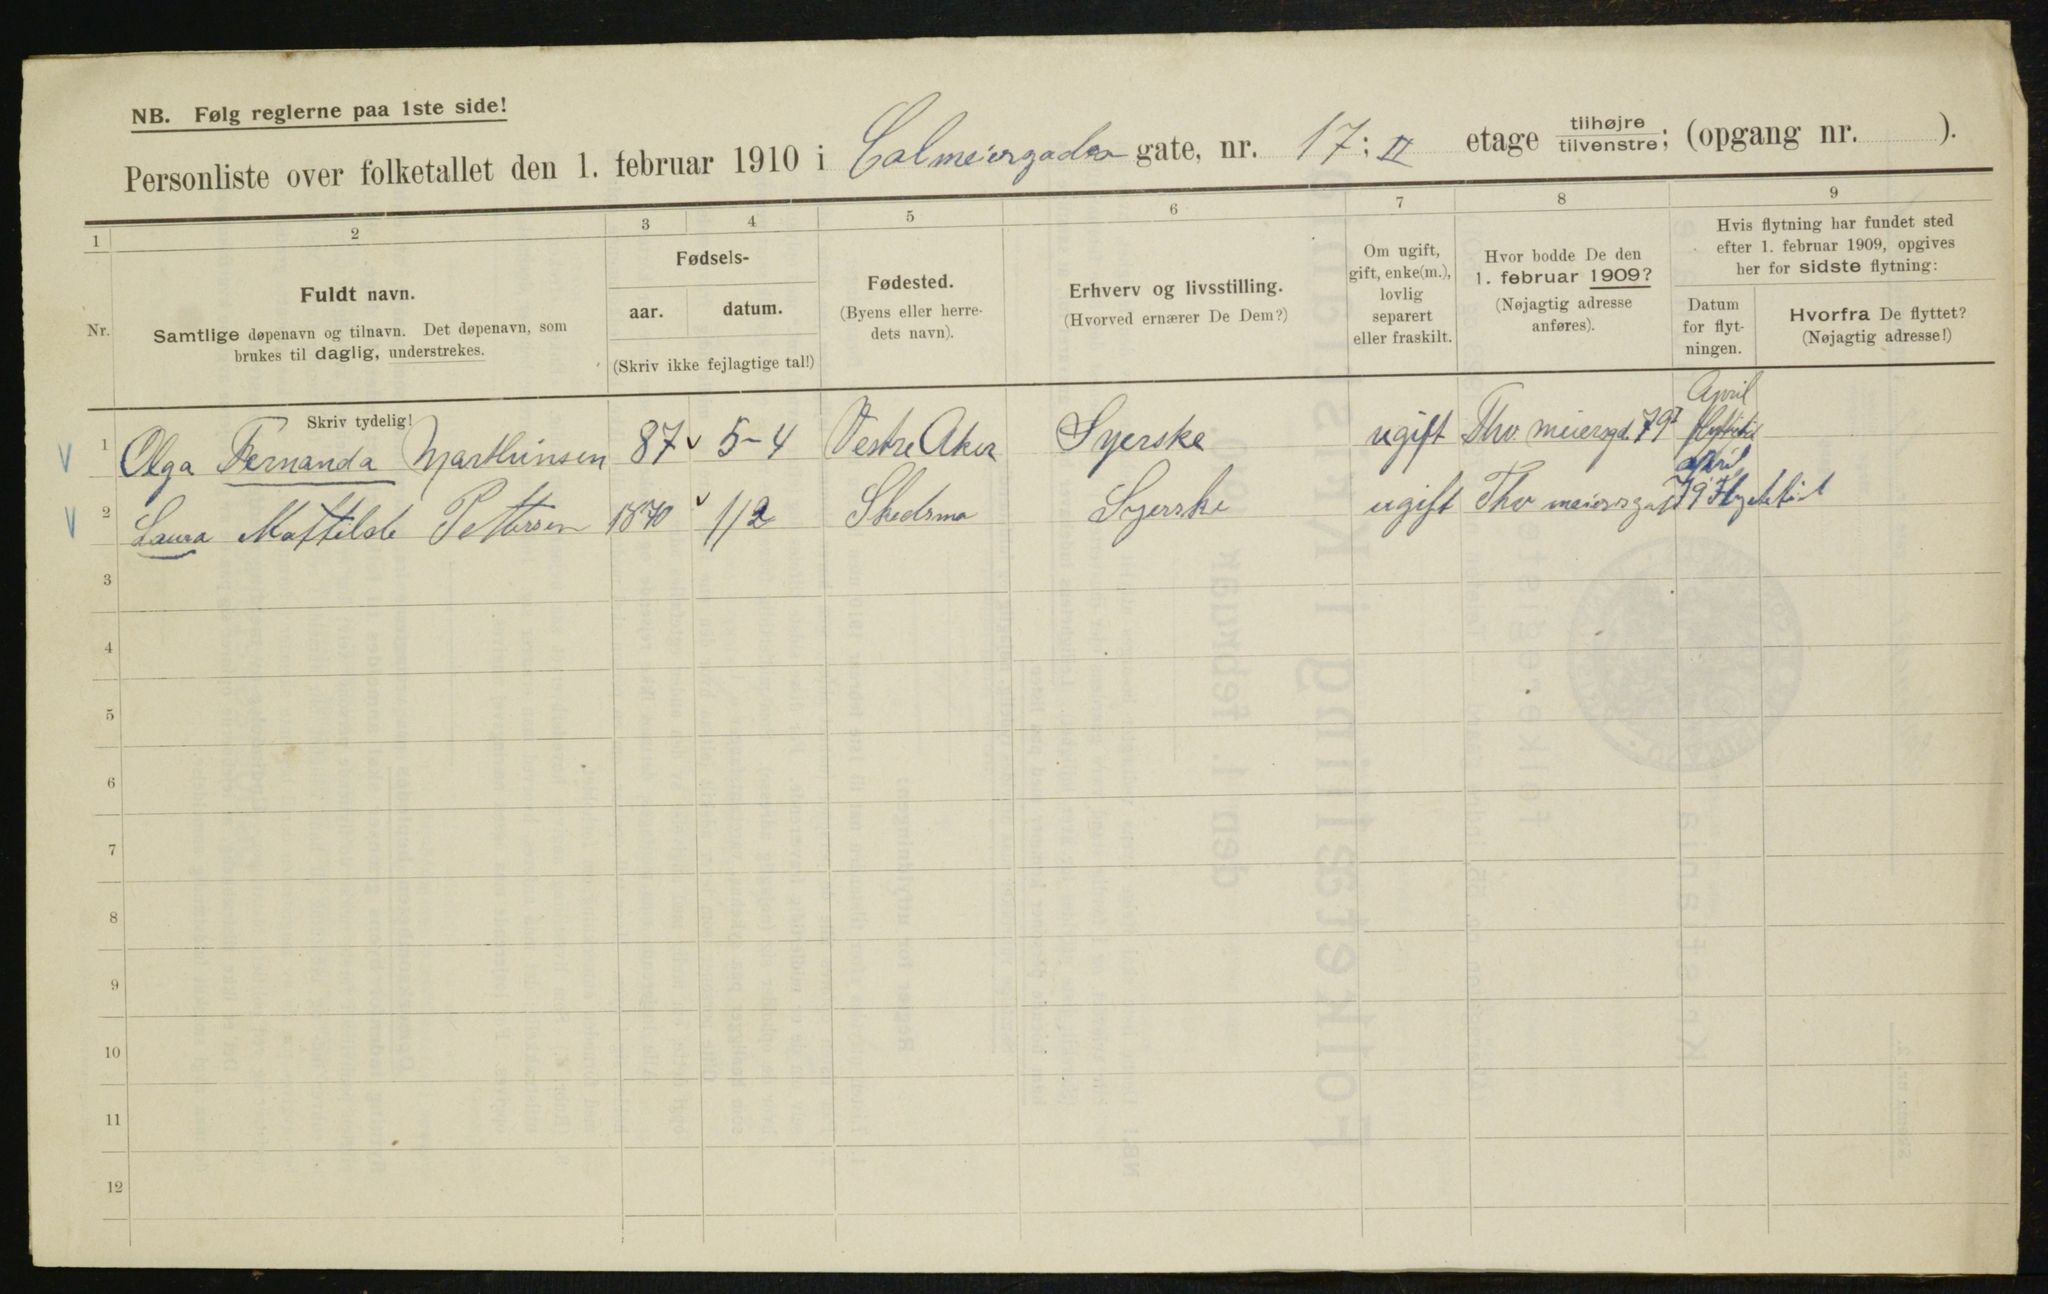 NB. Følg reglerne paa 1ste side!
Personliste over folketallet den 1. februar 1910 i Calmeiergaden gate, nr. 17: II etage tilhøjre tilvenstre; (opgang nr. ).
1 2 3 4 5 6 7 8 9
Nr.
Fuldt navn.
Samtlige døpenavn og tilnavn. Det døpenavn, som
brukes til daglig, understrekes.
Skriv tydelig!
Fødsels-
aar. datum.
(Skriv ikke fejlagtige tal!)
Fødested.
(Byens eller herre-
dets navn).
Erhverv og livsstilling.
(Hvorved ernærer De Dem?)
Om ugift,
gift, enke(m.),
lovlig
separert
eller fraskilt.
Hvor bodde De den
1. februar 1909?
(Nøjagtig adresse
anføres).
Hvis flytning har fundet sted
efter 1. februar 1909, opgives
her for sidste flytning:
Datum
for flyt-
ningen.
Hvorfra De flyttet?
(Nøjagtig adresse!)
April
1 Olga Fernanda Marthinsen 87 5-4 Vestre Aker Syerske ugift Tho meiersgd. 79
april
2 Laura Mathilde Pettersen 1870 1/2 Skedsmo Syerske ugift Tho meiersgat 79
3
4
5
6
7
8
9
10
11
12